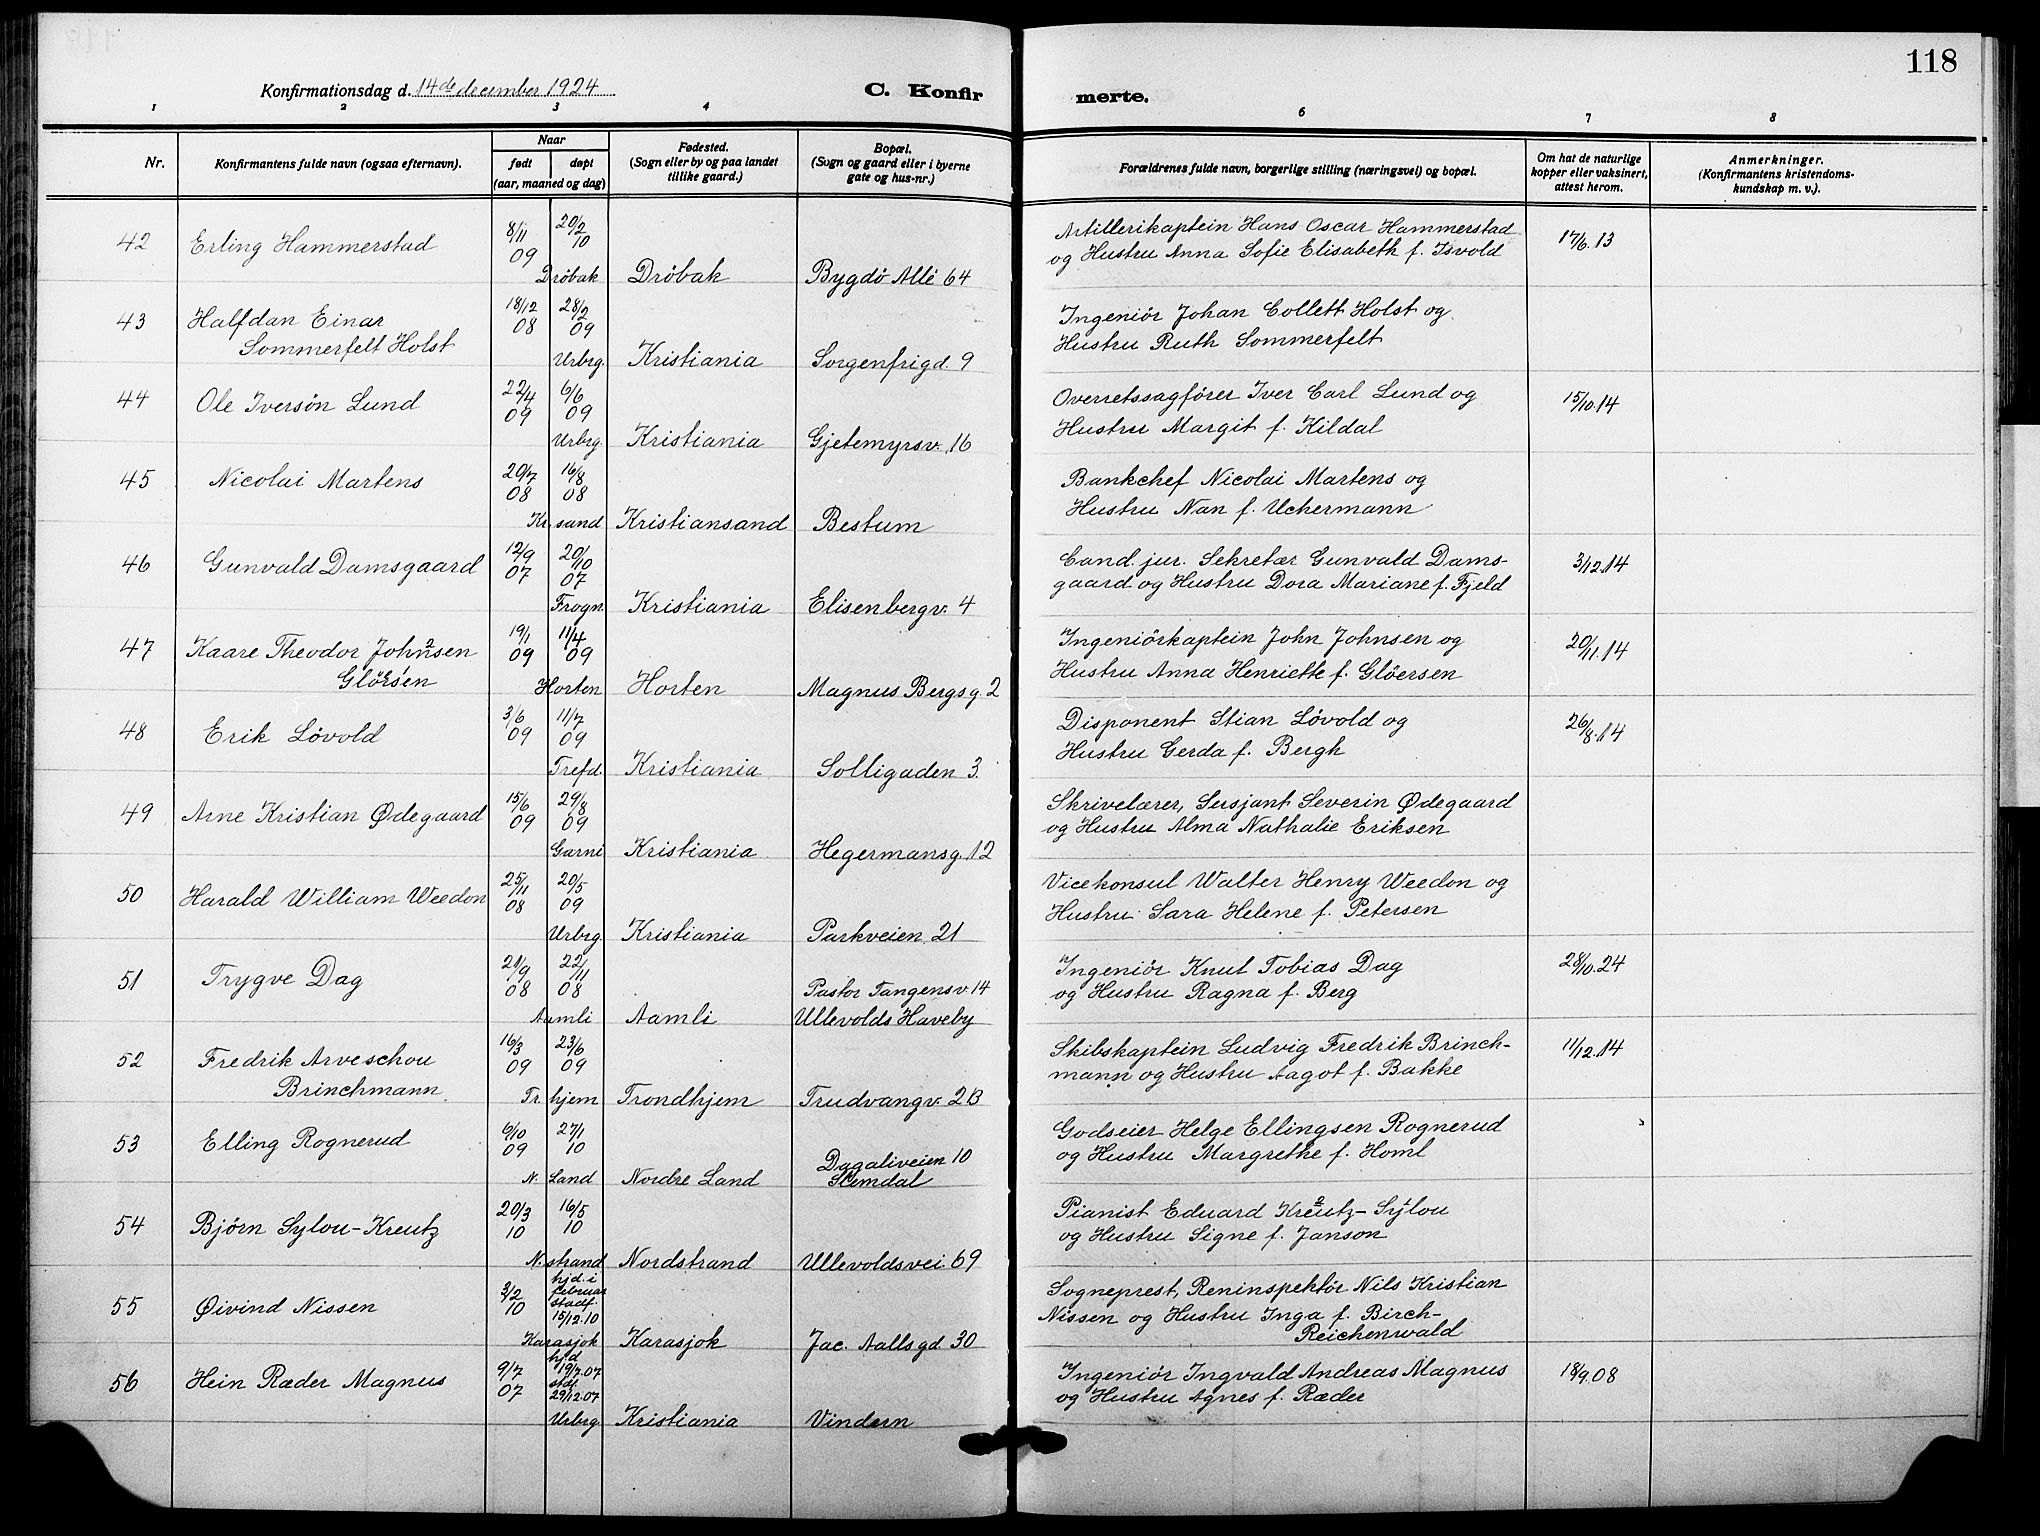 118
Konfirmationsdag d. 14de december 1924
C. Konfirmerte.
1 2 3 4 5 6 7 8
Nr.
Konfirmantens fulde navn (ogsaa efternavn).
Naar
født døpt
(aar, maaned og dag)
Fødested.
(Sogn eller by og paa landet
tillike gaard.)
Bopæl.
(Sogn og gaard eller i byerne
gate og hus-nr.)
Forældrenes fulde navn, borgerlige stilling (næringsvei) og bopæl.
Om hat de naturlige
kopper eller vaksinert,
attest herom.
Anmerkninger.
(Konfirmantens kristendoms-
kundskap m. v.).
42 Erling Hammerstad 8/11 09 20/2 10
Drøbak Drøbak Bygdø Allé 64
Artillerikaptein Hans Oscar Hammerstad 17/6.13
og Hustru Anna Sofie Elisabeth f. Isvold
43 Halfdan Einar 18/12 08 28/2 09
Sommerfelt Holst
Urbrg. Kristiania Sorgenfrigd. 9
Ingeniør Johan Collett Holst og
Hustru Ruth Sommerfelt
44 Ole Iversøn Lund 22/4 09 6/6 09
Urbrg. Kristiania Gjetemyrsv. 16
Overretssagfører Iver Carl Lund og 15/10.14
Hustru Margit f. Kildal
45 Nicolai Martens 20/7 08 16/8 08
Kr. sand Kristiansand Bestum
Bankchef Nicolai Martens og
Hustru Nan f. Uchermann
46 Gunvald Damsgaard 12/9 07 20/10 07
Frogn. Kristiania Elisenbergv. 4
Cand. jur. Sekretær Gunvald Dams- 3/12.14
gaard og Hustru Dora Mariane f. Fjeld
47 Kaare Theodor Johnsen 19/1 09 11/4 09
Glørsen
Horten Horten Magnus Bergsg. 2
Ingeniørkaptein John Johnsen og 20/11.14
Hustru Anna Henriette f. Gløersen
48 Erik Løvold 3/6 09 11/7 09
Trefd. Kristiania Solligaden 3.
Disponent Stian Løvold og 26/8.14
Hustru Gerda f. Bergh
49 Arne Kristian Ødegaard 15/6 09 29/8 09
Garni Kristiania Hegermansg. 12
Skrivelærer, Sersjant Severin Ødegaard
og Hustru Alma Nathalie Eriksen
50 Harald William Weedon 25/11 08 20/5 09
Urbrg. Kristiania Parkveien 21
Vicekonsul Walter Henry Weedon og
Hustru Sara Helene f. Petersen
51 Trygve Dag 21/9 08 22/11 08
Pastor Fangensv. 14
Aamli Aamli Ullevolds Haveby
Ingeniør Knut Tobias Dag 28/10.24
og Hustru Ragna f. Berg
52 Fredrik Arveschou 16/3 09 23/6 09
Brinchmann
Tr. hjem Trondhjem Trudvangv. 2B
Skibskaptein Ludvig Fredrik Brinch- 11/12.14
mann og Hustru Aagot f. Bakke
53 Elling Rognerud 6/10 09 27/1 10
Dagaliveien 10
N. Land Nordre Land Slemdal
Godseier Helge Ellingsen Rognerud
og Hustru Margrethe f. Homl
54 Bjørn Sylou-Kreutz 20/3 10 16/5 10
N. strand Nordstrand Ullevoldsvei. 69
Pianist Eduard Kreutz-Sylou
og Hustru Signe f. Janson
55 Øivind Nissen 3/2 10 hjd. i februar stadf. 15/12.10
Karasjok Karasjok Jac. Aallsgd. 30
Sogneprest, Reninspektør Nils Kristian
Nissen og Hustru Inga f. Birch-
Reichenwald
56 Hein Ræder Magnus 9/7 07 hjd 19/7.07 stdf. 29/12.07
Urbrg Kristiania Vindern
Ingeniør Ingvald Andreas Magnus 18/9.08
og Hustru Agnes f. Ræder